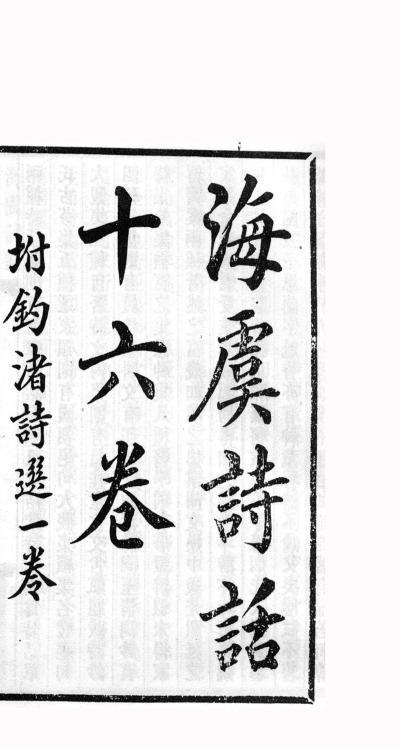 海虞詩話
十六卷
坿釣渚詩選一卷